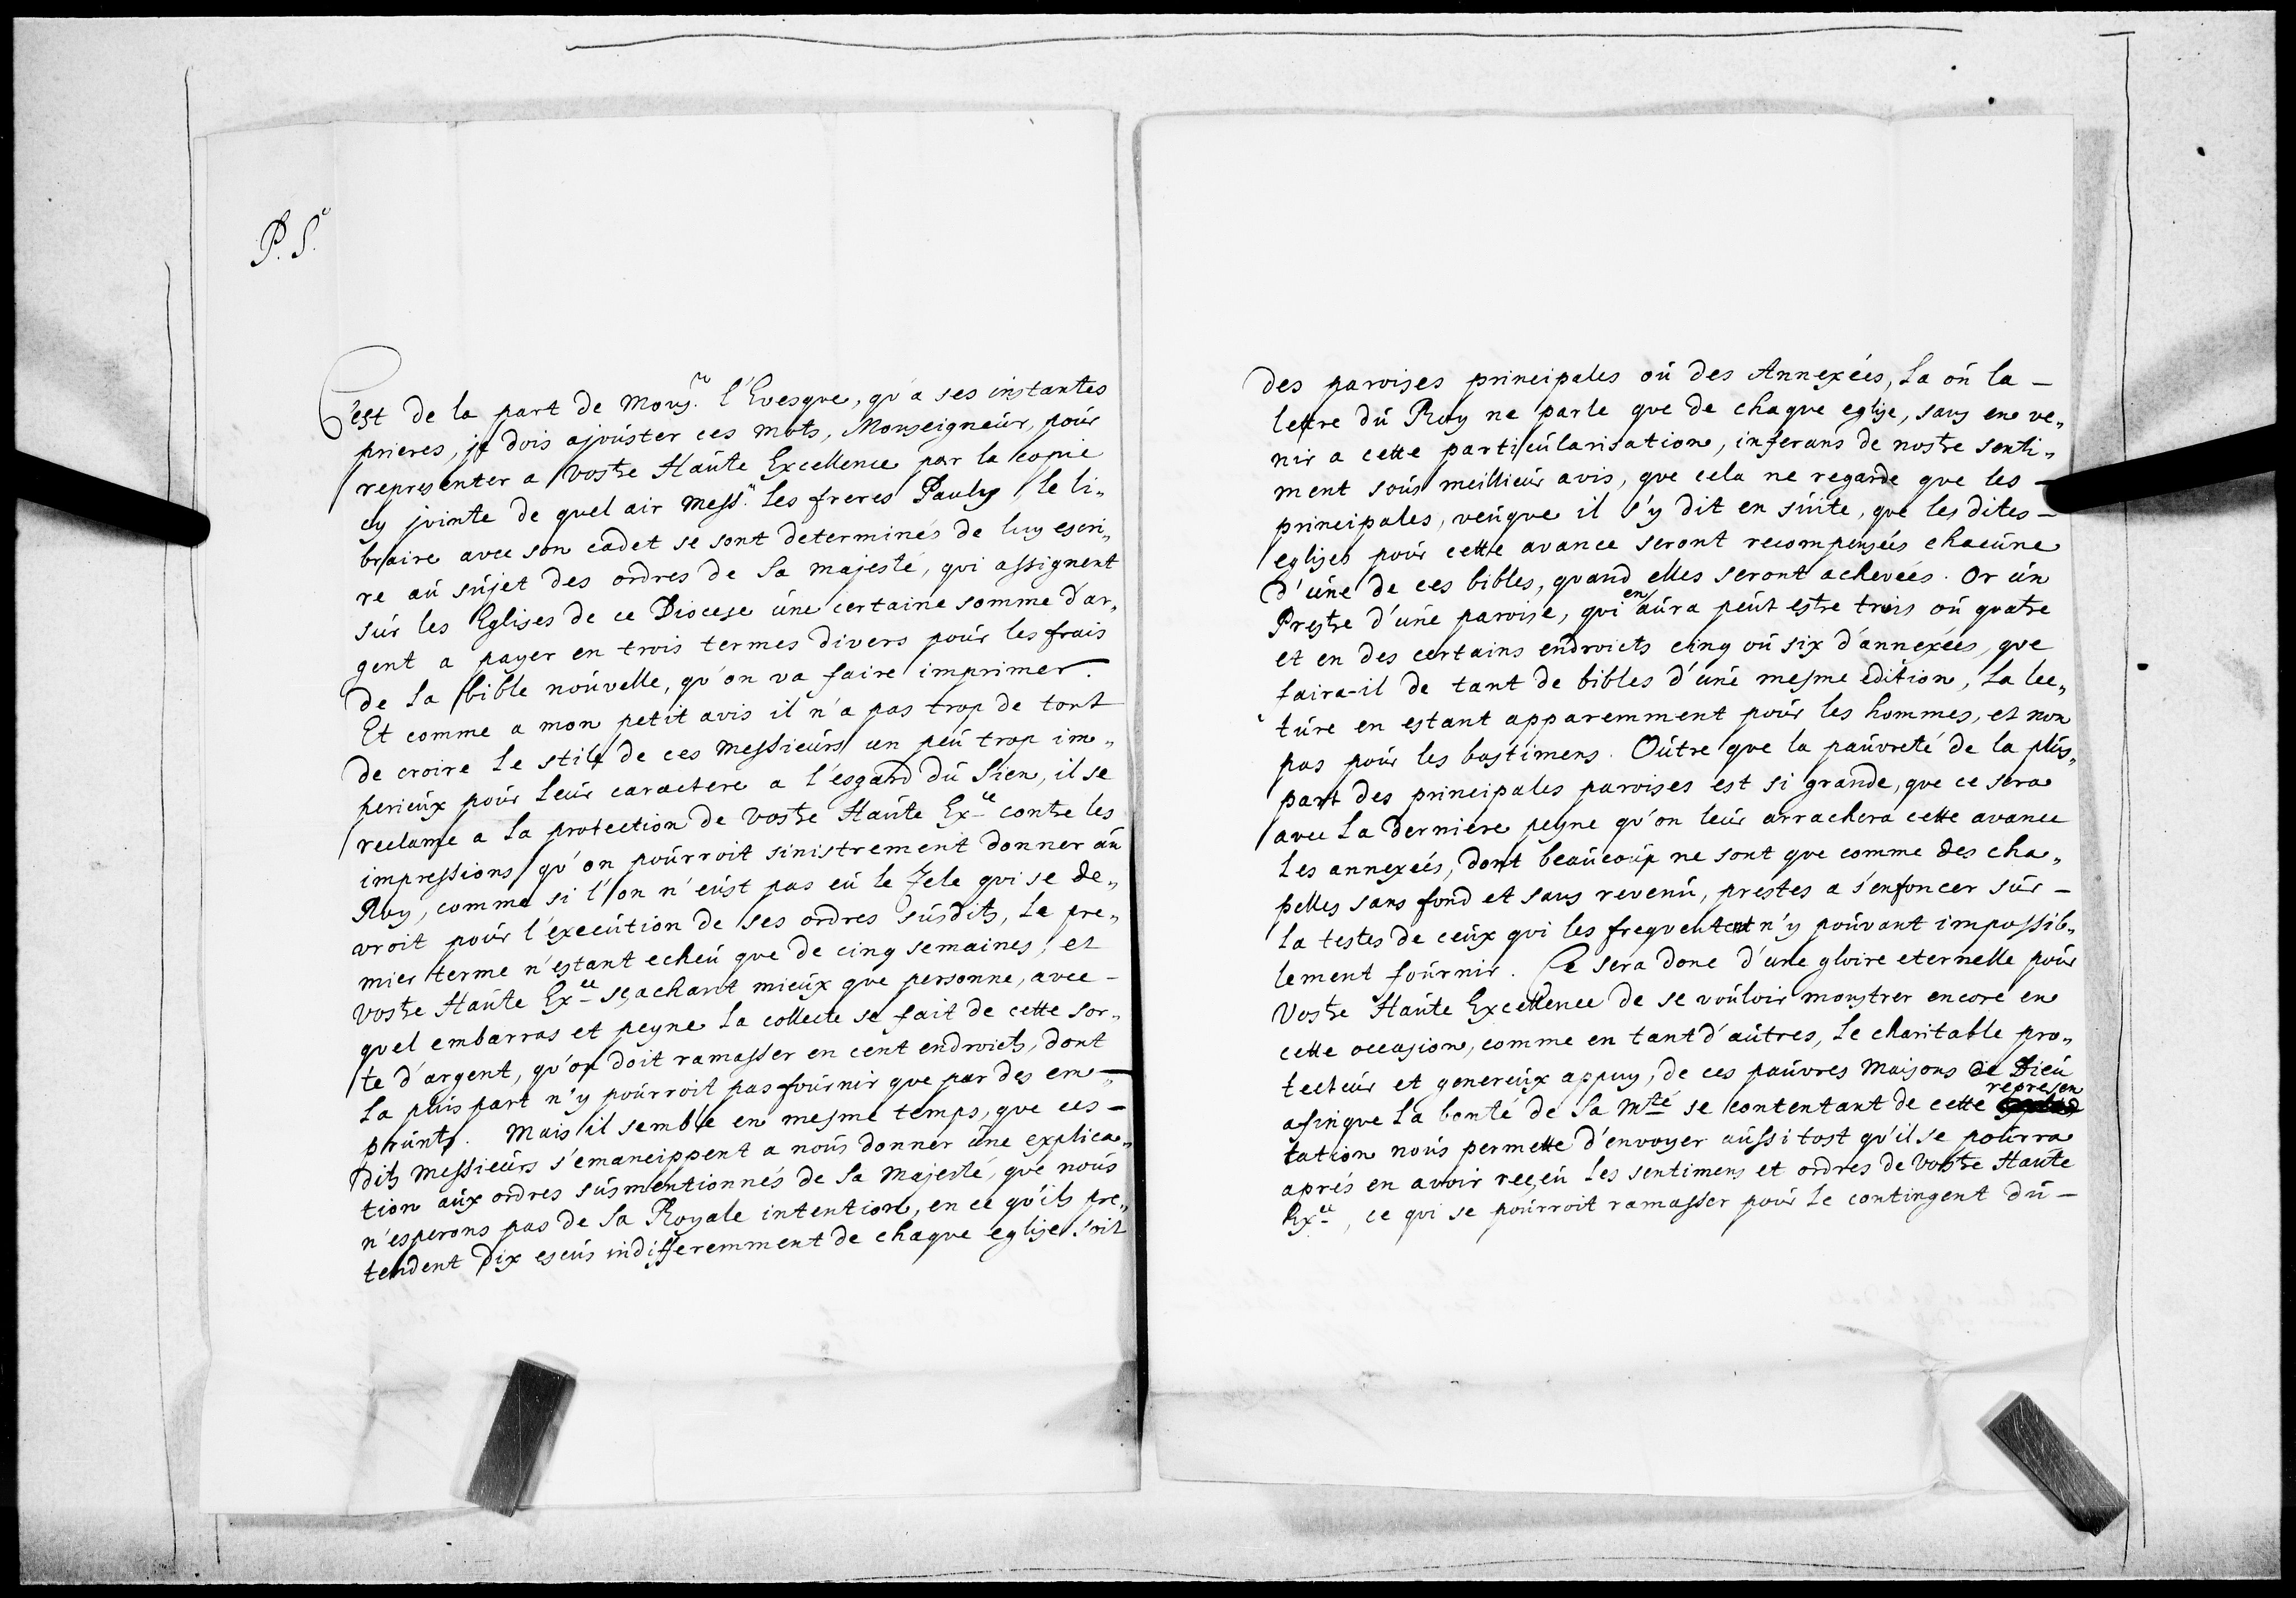 P. S.
C'est de la part de Mons.r l'Evesque, qu'a ses instantes
prieres, je dois ajoúster ces mots, Monseigneúr, poúr
representer a vostre Haúte Excellence par la copie
cy jointe de quel air Mess.rs les freres Paulys le li„
braire avec son cadet se sont determinés de luy escri„
re aú sújet des ordres de sa majesté, qui assignent
súr les Eglises de ce Diocese úne certaine somme d'ar„
gent a payer en trois termes divers poúr les frais
de la bible noúvelle, qu'on va faire imprimer.
Et comme a mon petit avis il n'a pas trop de tort
de croire le stile de ces Messieúrs un peú trop im„
perieúx poúr leúr caractere a l'esgard dú sien, il se
reclame a la protection de vostre Haúte Ex.ce contre les
impressions qu'on poúrroit sinistrement donner aú
Roy, comme si l'on n'eúst pas eú le Zele qui se de„
vroit poúr l'execútion de ses ordres súsdits, le pre„
mier terme n'estant echeú que de cinq semaines, et
vostre Haúte Ex.ce sçachant mieúx que personne, avec –
quel embarras et peyne la collecte se fait de cette sor„
te d'argent, qu'on doit ramasser en cent endroicts, dont
la plús part n'y poúrroit pas foúrnir que par des em –
prúnts. Mais il semble en mesme temps, que ces –
dits Messieúrs s'emancippent a noús donner úne explica„
tion aúx ordres súsmentionnés de sa Majesté, que noús
n'esperons pas de sa Royale intention, en ce qu'ils pre„
tendent dix escús indifferemment de chaque eglise soit
des paroises principales oú des Annexées, la oú la –
lettre dú Roy ne parle que de chaque eglise, sans en ve„
nir a cette particúlarisation, inferans de nostre senti„
ment soús meillieúr avis, que cela ne regarde que les –
principales, veúque il s'y dit en súite, que les dites –
eglises poúr cette avance seront recompensées chacúne
d'úne de ces bibles, quand elles seront achevées. Or ún
Prestre d'úne paroise, qui en aúra peút estre trois oú quatre
et en des certains endroicts cinq oú six d'annexées, que
faira-il de tant de bibles d'úne mesme edition, la lec„
túre en estant apparemment poúr les hommes, et non
pas poúr les bastimens. Oútre que la paúvreté de la plús„
part des principales paroises est si grande, que ce sera
avec la derniere peyne qu'on leúr arrachera cette avance
les annexées, dont beaúcoúp ne sont que comme des cha„
pelles sans fond et sans revenú, prestes a s'enfoncer súr –
la testes de ceúx qui les frequentent n'y poúvant impossib„
lement foúrnir. Ce sera donc d'une gloire eternelle poúr
Vostre Haúte Excellence de se voúloir monstrer encore en
cette occasion, comme en tant d'aútres, le charitable pro„
tecteúr et genereúx appuy, de ces paúvres Maisons de Dieú
afinque la bonté de sa M.té se contentant de cette represen
tation noús permette d'envoyer aússi tost qu'il se poúrra
aprés en avoir reçeú les sentimens et ordres de vostre Haúte
Ex.ce, ce qui se poúrroit ramasser poúr le contingent dú –